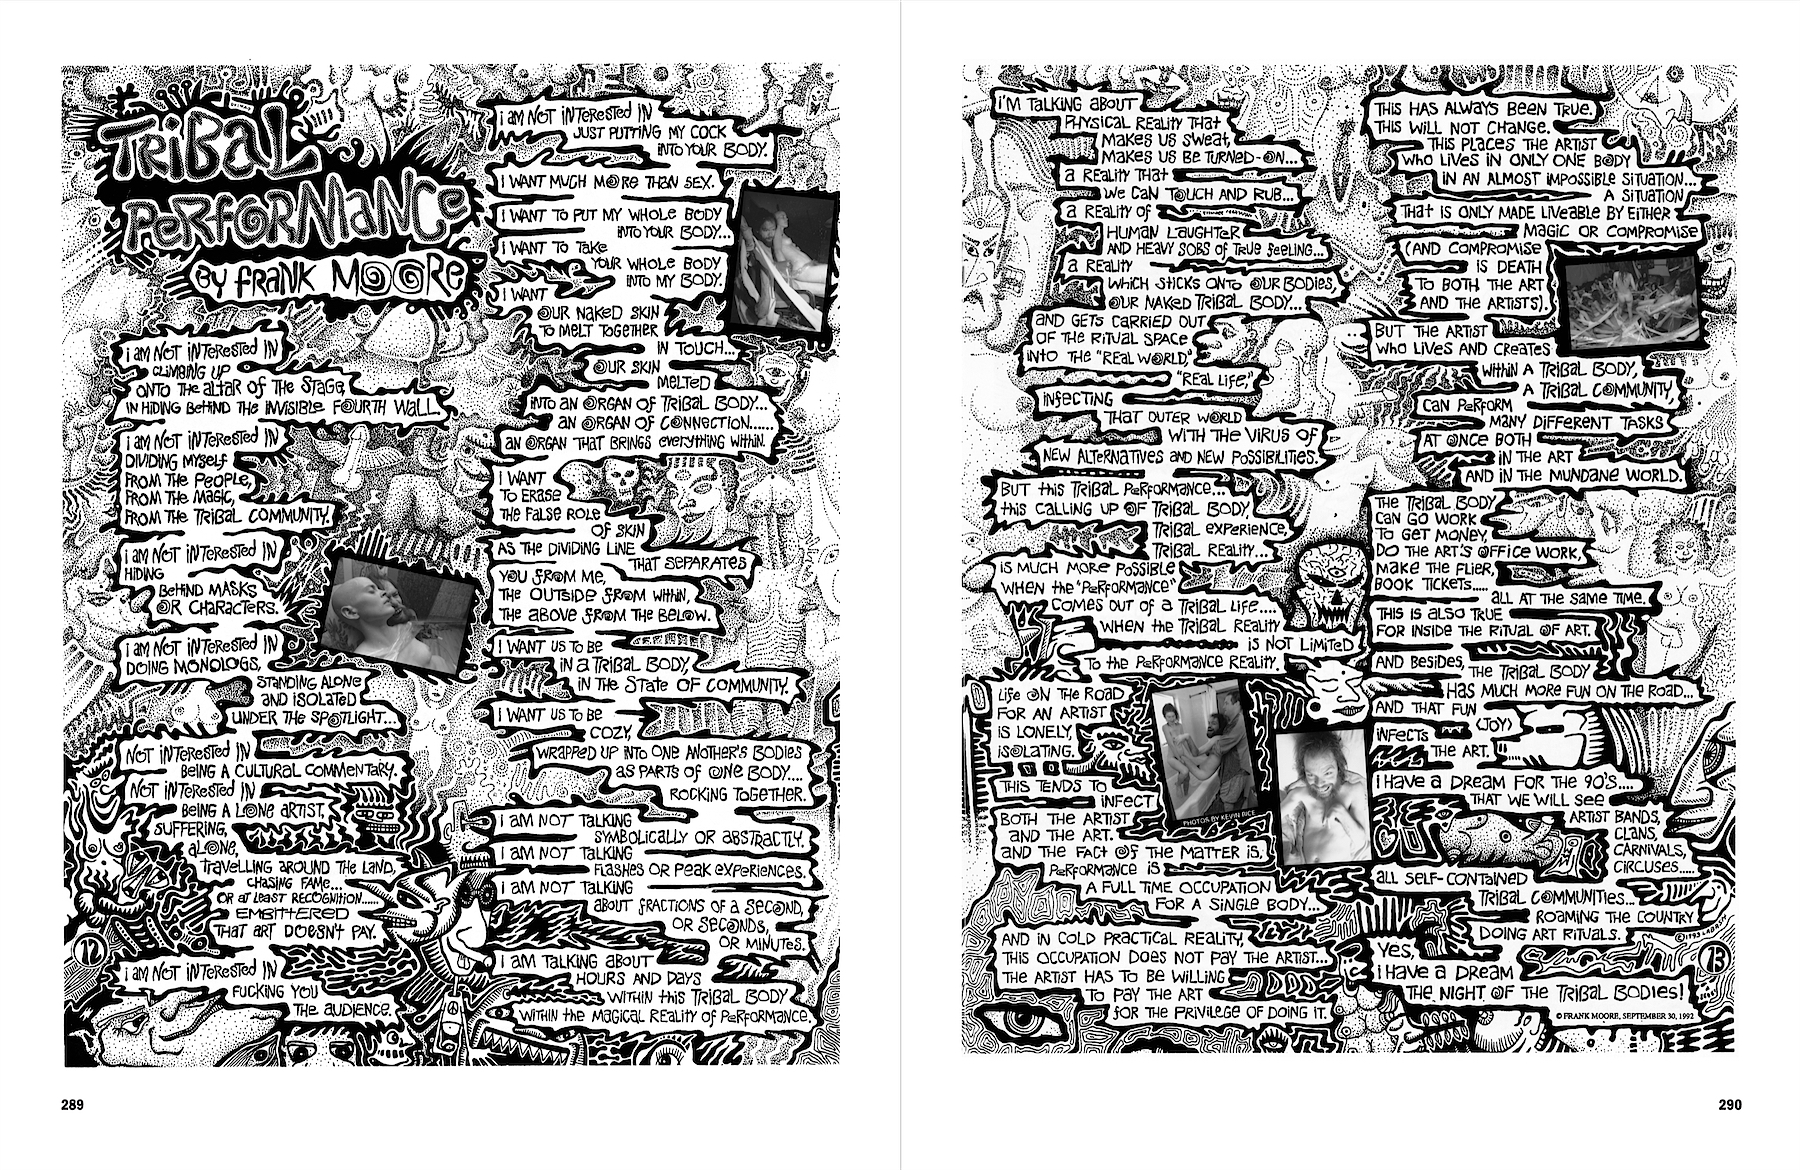 TRIBAL
PERFORMANCE
BY FRANK MOORE
I AM NOT INTERESTED IN
CLIMBING UP
ONTO THE ALTAR OF THE STAGE,
IN HIDING BEHIND THE INVISIBLE FOURTH WALL.
I AM NOT INTERESTED IN
DIVIDING MYSELF
FROM THE PEOPLE,
FROM THE MAGIC,
FROM THE TRIBAL COMMUNITY.
I AM NOT INTERESTED IN
HIDING
BEHIND MASKS
OR CHARACTERS.
I AM NOT INTERESTED IN
DOING MONOLOGS,
STANDING ALONE
AND ISOLATED
UNDER THE SPOTLIGHT...
NOT INTERESTED IN
BEING A CULTURAL COMMENTARY.
NOT INTERESTED IN
BEING A LONE ARTIST,
SUFFERING,
ALONE,
TRAVELLING AROUND THE LAND,
CHASING FAME...
OR AT LEAST RECOGNITION.....
EMBITTERED
THAT ART DOESN'T PAY.
I AM NOT INTERESTED IN
FUCKING YOU
THE AUDIENCE.
12
I AM NOT INTERESTED IN
JUST PUTTING MY COCK
INTO YOUR BODY.
I WANT MUCH MORE THAN SEX.
I WANT TO PUT MY WHOLE BODY
INTO YOUR BODY...
I WANT TO TAKE
YOUR WHOLE BODY
INTO MY BODY.
I WANT
OUR NAKED SKIN
TO MELT TOGETHER
IN TOUCH...
OUR SKIN
MELTED
INTO AN ORGAN OF TRIBAL BODY...
AN ORGAN OF CONNECTION......
AN ORGAN THAT BRINGS EVERYTHING WITHIN.
I WANT
TO ERASE
THE FALSE ROLE
OF SKIN
AS THE DIVIDING LINE
THAT SEPARATES
YOU FROM ME,
THE OUTSIDE FROM WITHIN,
THE ABOVE FROM THE BELOW.
I WANT US TO BE
IN A TRIBAL BODY,
IN THE STATE OF COMMUNITY.
I WANT US TO BE
COZY,
WRAPPED UP INTO ONE ANOTHER'S BODIES
AS PARTS OF ONE BODY....
ROCKING TOGETHER.
I AM NOT TALKING
SYMBOLICALLY OR ABSTRACTLY.
I AM NOT TALKING
FLASHES OR PEAK EXPERIENCES.
I AM NOT TALKING
ABOUT FRACTIONS OF A SECOND,
OR SECONDS,
OR MINUTES.
I AM TALKING ABOUT
HOURS AND DAYS
WITHIN THIS TRIBAL BODY
WITHIN THE MAGICAL REALITY OF PERFORMANCE.
289
I'M TALKING ABOUT
PHYSICAL REALITY THAT
MAKES US SWEAT,
MAKES US BE TURNED-ON...
A REALITY THAT
WE CAN TOUCH AND RUB...
A REALITY OF
HUMAN LAUGHTER
AND HEAVY SOBS OF TRUE FEELING...
A REALITY
WHICH STICKS ONTO OUR BODIES,
OUR NAKED TRIBAL BODY...
AND GETS CARRIED OUT
OF THE RITUAL SPACE
INTO THE "REAL WORLD",
"REAL LIFE,"
INFECTING
THAT OUTER WORLD
WITH THE VIRUS OF
NEW ALTERNATIVES AND NEW POSSIBILITIES.
BUT THIS TRIBAL PERFORMANCE...
THIS CALLING UP OF TRIBAL BODY,
TRIBAL EXPERIENCE,
TRIBAL REALITY...
IS MUCH MORE POSSIBLE
WHEN THE "PERFORMANCE"
COMES OUT OF A TRIBAL LIFE....
WHEN THE TRIBAL REALITY
IS NOT LIMITED
TO THE PERFORMANCE REALITY.
LIFE ON THE ROAD
FOR AN ARTIST
IS LONELY,
ISOLATING.
THIS TENDS TO
INFECT
BOTH THE ARTIST
AND THE ART.
AND THE FACT OF THE MATTER IS,
PERFORMANCE IS
A FULL TIME OCCUPATION
FOR A SINGLE BODY...
AND IN COLD PRACTICAL REALITY,
THIS OCCUPATION DOES NOT PAY THE ARTIST...
THE ARTIST HAS TO BE WILLING
TO PAY THE ART
FOR THE PRIVILEGE OF DOING IT.
PHOTOS BY KEVIN RICE
THIS HAS ALWAYS BEEN TRUE.
THIS WILL NOT CHANGE.
THIS PLACES THE ARTIST
WHO LIVES IN ONLY ONE BODY
IN AN ALMOST IMPOSSIBLE SITUATION...
A SITUATION
THAT IS ONLY MADE LIVEABLE BY EITHER
MAGIC OR COMPROMISE
(AND COMPROMISE
IS DEATH
TO BOTH THE ART
AND THE ARTISTS).
...BUT THE ARTIST
WHO LIVES AND CREATES
WITHIN A TRIBAL BODY,
A TRIBAL COMMUNITY,
CAN PERFORM
MANY DIFFERENT TASKS
AT ONCE BOTH
IN THE ART
AND IN THE MUNDANE WORLD.
THE TRIBAL BODY
CAN GO WORK
TO GET MONEY,
DO THE ART'S OFFICE WORK,
MAKE THE FLIER,
BOOK TICKETS.....
ALL AT THE SAME TIME.
THIS IS ALSO TRUE
FOR INSIDE THE RITUAL OF ART.
AND BESIDES,
THE TRIBAL BODY
HAS MUCH MORE FUN ON THE ROAD...
AND THAT FUN
(JOY)
INFECTS
THE ART.
I HAVE A DREAM FOR THE 90'S....
THAT WE WILL SEE
ARTIST BANDS,
CLANS,
CARNIVALS,
CIRCUSES....
ALL SELF-CONTAINED
TRIBAL COMMUNITIES...
ROAMING THE COUNTRY
DOING ART RITUALS.
YES,
I HAVE A DREAM
THE NIGHT OF THE TRIBAL BODIES!
13
© FRANK MOORE, SEPTEMBER 30, 1992
290